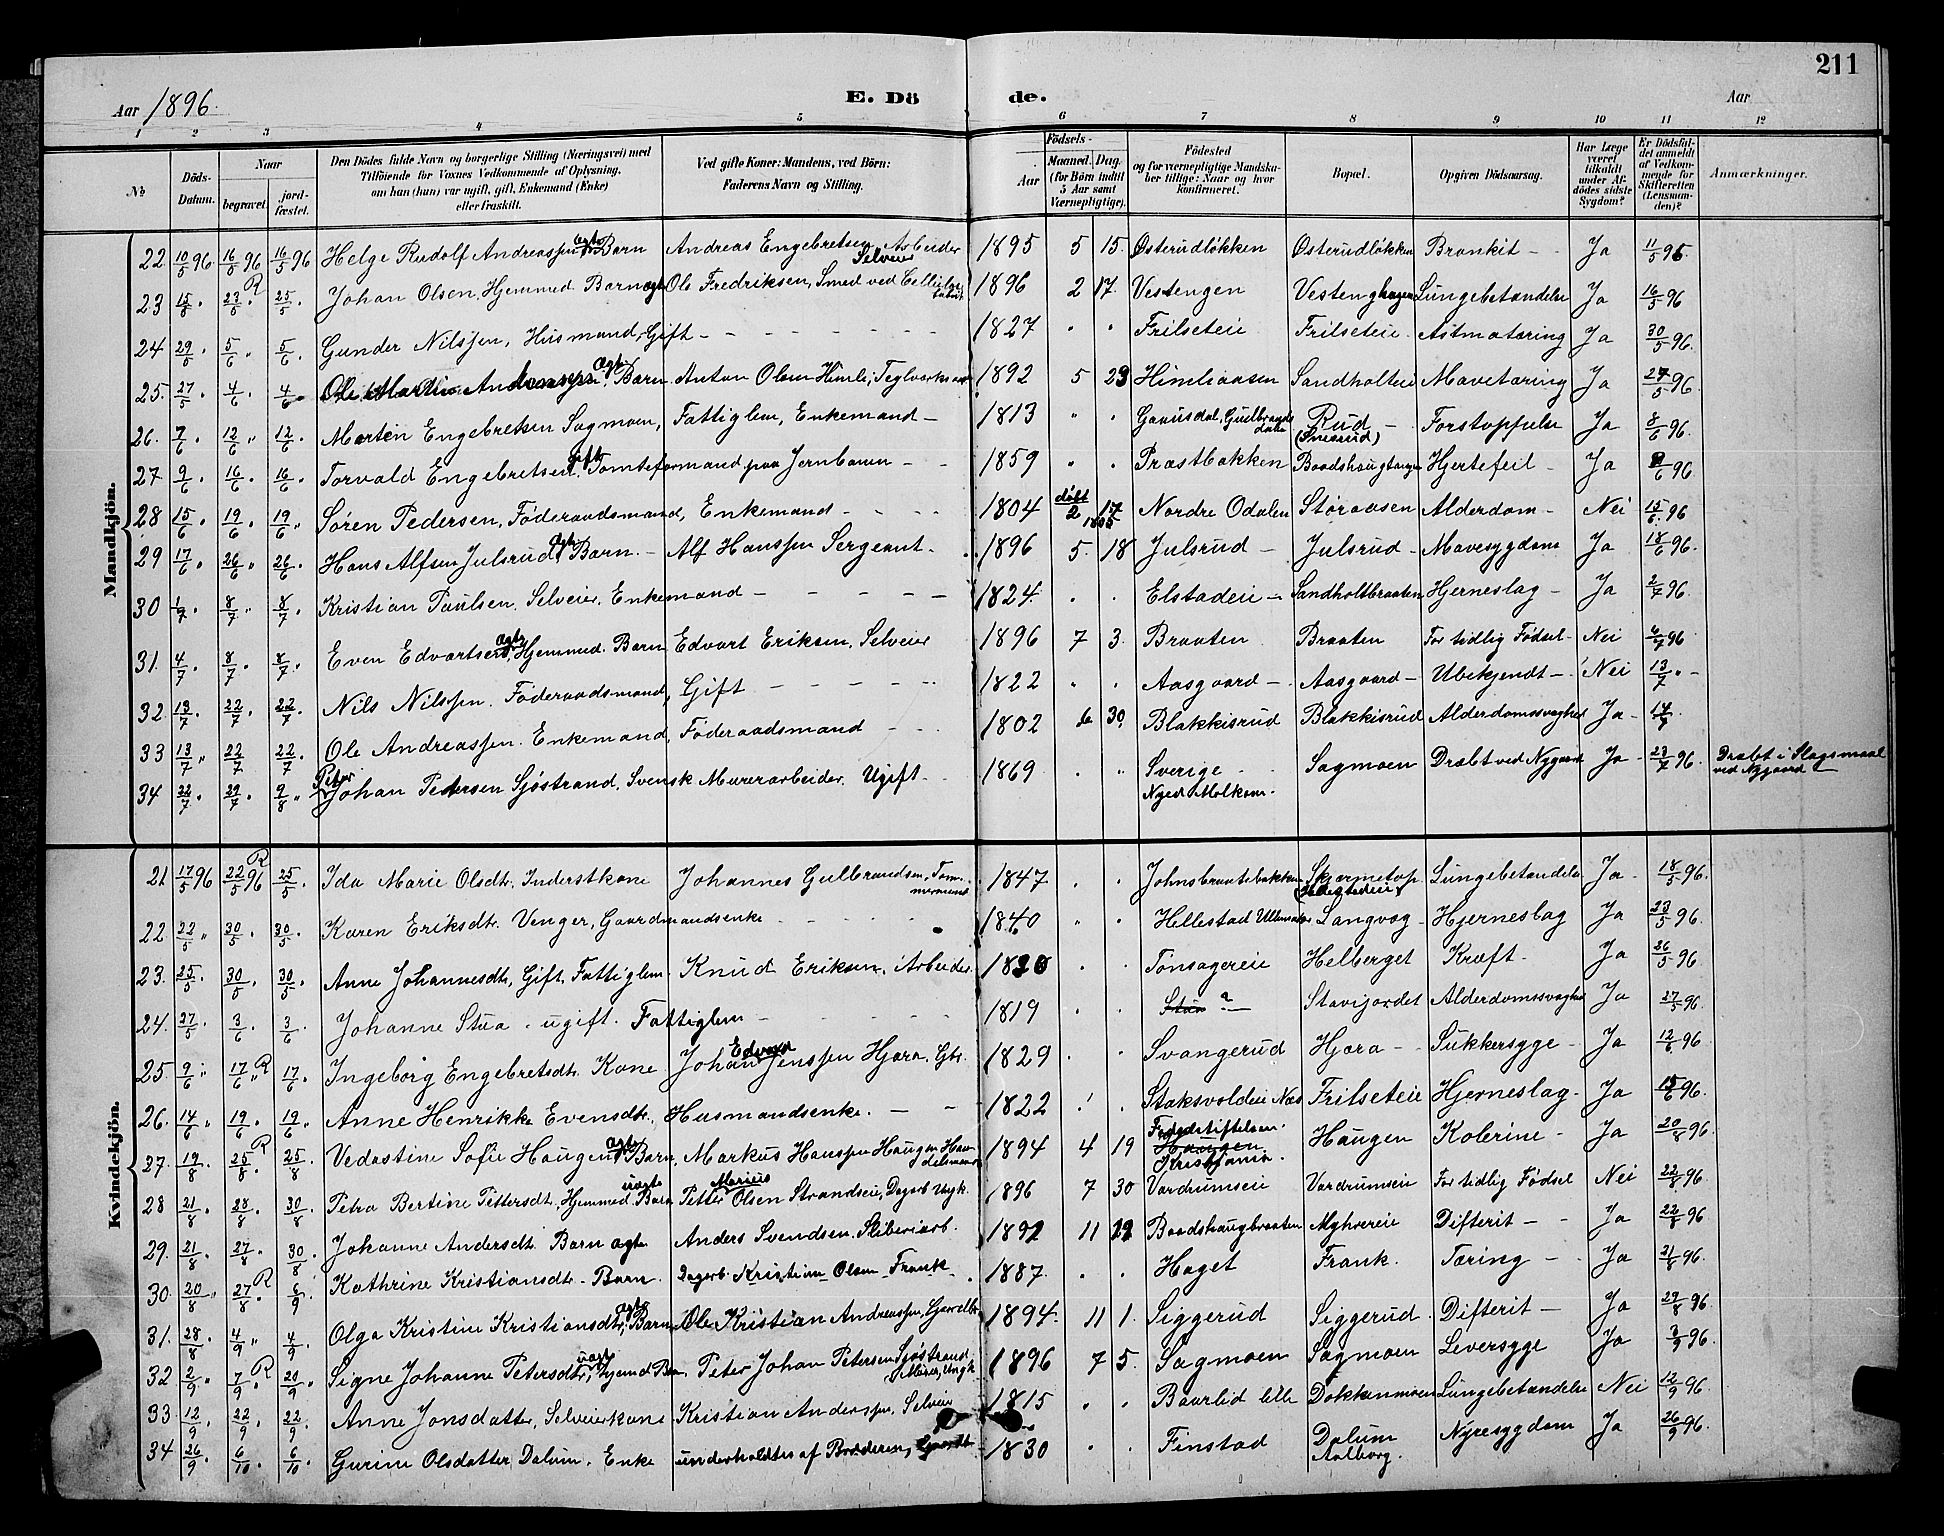 211
Aar 1896. E. Dö de. Aar
1 2 3 4 5 6 7 8 9 10 11 12
№ Döds-Datum. Naar begravet. jordfæstet. Den Dödes fulde Navn og borgerlige Stilling (Næringsvei) med Tilföiende for Voxnes Vedkommende af Oplysning, om han (hun) var ugift, gift, Enkemand (Enke) eller fraskilt. Ved gifte Koner: Mandens, ved Börn: Faderens Navn og Stilling. Födsels- Aar Maaned. Dag. (for Börn indtil 5 Aar samt Værnepligtige). Födested og for værnepligtige Mandskaber tillige: Naar og hvor konfirmeret. Bopæl. Opgiven Dödsaarsag. Har Læge været tilkaldt under Afdödes sidste Sygdom? Er Dödsfaldet anmeldt af Vedkommende for Skifteretten (Lensmanden)? Anmærkninger.
Mandkjön.
22 10/5 96 16/5 96 16/5 96 Helge Rudolf Andreassen ægte Barn Andreas Engebretsen Arbeider Selveier 1895 5 15. Østerudløkken Østerudløkken Bronkit - Ja 11/5 96.
23 15/5 " 23/5 " R 25/5 " Johan Olsen, Hjemmed. Barn ægte Ole Fredriksen, Smed ved 1896 2 17. Vestengen Vestenghagen Lungebetændelse Ja 16/5 96
24 29/5 " 5/6 " 5/6 " Gunder Nilssen, Husmand, Gift - 1827 " " Frilseteie Frilseteie. Astmatæring Ja 30/5 96.
25. 27/5 " 4/6 " 4/6 " Ole Martin Antonsen ægte Barn. Anton Olsen Himli, 1892 5 23 Himliaasen Sandholteie Mavetæring Ja 27/5 96.
26. 7/6 " 12/6 " 12/6 " Martin Engebretsen Sagmoen, Fattiglem, Enkemand - 1813 " " Gausdal, Gudbrandsdalen Rud - (Snesrud) Forstoppelse Ja 8/6 96.
27 9/6 " 16/6 " 16/6 " Torvald Engebretsen gift Tomteformand paa Jernbanen - 1859 " " Præstbakken Baadshaugtangen Hjertefeil - Ja 9/6 96
28 15/6 " 19/6 " 19/6 " Søren Pedersen, Føderaadsmand, Enkemand - 1804 døbt 2 17 1805 Nordre Odalen Støraasen Alderdom - Nei 15/6 96
29 17/6 " 26/6 " 26/6 " Hans Alfsen Julsrud ægte Barn. - Alf Hanssen Sergeant. 1896 5. 18 Julsrud - Julsrud - Mavesygdom Ja 18/6 96.
30 1/7 " 8/7 " 8/7 " Kristian Paulsen. Selveier, Enkemand - 1824. " " Elstadeie - Sandholtbraaten Hjerneslag - Ja 2/7 96.
31. 4/7 " 8/7 " 8/7 " Even Edvartsen ægte, Hjemmed. Barn Edvart Eriksen, Selveier 1896 7 3. Braaten Braaten For tidlig Fødsel - Nei 6/7 96
32 13/7 " 22/7 " 22/7 " Nils Nilssen. Føderaadsmand, Gift - 1822 " " Aasgaard - Aasgaard - Ubekjendt - Nei 13/7 " -
33 13/7 " 22/7 " 22/7 " Ole Andreassen. Enkemand, Føderaadsmand - 1802 6 30. Blakkisrud Blakkisrud Alderdomssvaghed Ja - 14/7
34 22/7 " 29/7 " 9/8 " Peter Johan Petersen Sjøstrand, Svensk Murerarbeider. Ugift. 1869 " " Sverige - Nyed Molkom. Sagmoen Dræbt ved Nygaard Ja - 23/7 96. Dræbt i Slagsmaal ved Nygaard
Kvindekjön.
21 17/5 96 22/5 96 R 25/5 " Ida Marie Olsdtr. Inderstkone Johannes Gulbrandsen, Tømmermand 1847 " " Johnsbraatebakken Skjærmetop (Holestadeie) Lungebetændelse Ja - 18/5 96.
22 22/5 " 30/5 " 30/5 " Karen Eriksdtr. Venger, Gaardmandsenke - 1840 " " Hellestad Ullensaker Langvæg - Hjerneslag Ja 23/5 96.
23. 25/5 " 30/5 " 30/5 " Anne Johannesdtr, Gift, Fattiglem. Knud Eriksen, Arbeider 1820 " " Tønsagereie Helberget Kræft - Ja 26/5 96.
24. 27/5 " 3/6 " 3/6 " Johanne Stua. ugift. Fattiglem - 1819 " " Stua ? - Stavijordet Alderdomssvaghed Ja 27/5 96.
25 9/6 " 17/6 " R 17/6 " Ingeborg Engebretsdtr. Kone Johan Edvard Jenssen Hjæra, Gbr. 1829 " " Svangerud Hjæra - Sukkersyge - Ja 12/6 96.
26. 14/6 " 19/6 " 19/6 " Anne Henrikke Evensdtr., Husmandsenke. - 1822 " " Staksvoldeie Næs Frilseteie Hjerneslag - Ja 15/6 96.
27. 19/8 " 25/8 " R 25/8 " Vedastine Sofie Haugen ægte Barn. Markus Hanssen Haugen Handelsmand 1894 4 19 Fødselsstiftelsen. Haugen Kristiania. Haugen Kolerine - Ja 20/8 96.
28 21/8 " 28/8 " 30/8 " Petra Bertine Pettersdtr, Hjemmed. uægte Barn Petter Marius Olsen Strandseie, Dagarb. Ungk. 1896 7 30 Vardrumseie Vardrumseie For tidlig Fødsel Nei 22/8 96.
29. 21/8 " 27/8 " 30/8 Johanne Andersdtr. Barn ægte Anders Svendsen Sliberiarb. 1892 11 Baadshaugbraaten Myhrereie Difterit - Ja 22/8 96
30. 20/8 " 27/8 " R 6/9 " Kathrine Kristiansdtr - Barn. Dagarb. Kristian Olsen Frank. 1887. " " Haget Frank. Tæring - Ja 21/8 96.
31. 28/8 4/9 " 4/9 Olga Kristine Kristiansdtr, ægte Barn Ole Kristian Andreassen, 1894. 11 1. Siggerud Siggerud. Difterit - Ja 29/8 96.
32 2/9 " 7/9 " R 20/9 " Signe Johanne Petersdtr, uægte, Hjemd Barn. Peter Johan Petersen Sjøstrand, Murer, Ungk 1896 7 5. Sagmoen Sagmoen Leversyge Ja 3/9 96.
33 12/9 22/9 " 22/9 " Anne Jonsdatter, Selveierkone Kristian Anderssen, Selveier 1815 " " Baarlid lille Dokkenmoen Lungebetændelse Nei 12/9 96.
34 26/9 " 6/10 " 6/10 " Gurine Olsdatter Dalum. Enke underholdtes af Broderen, Gaardbr 1830 " " Finstad Dalum Aalborg. Nyresygdom Ja 26/9 96.